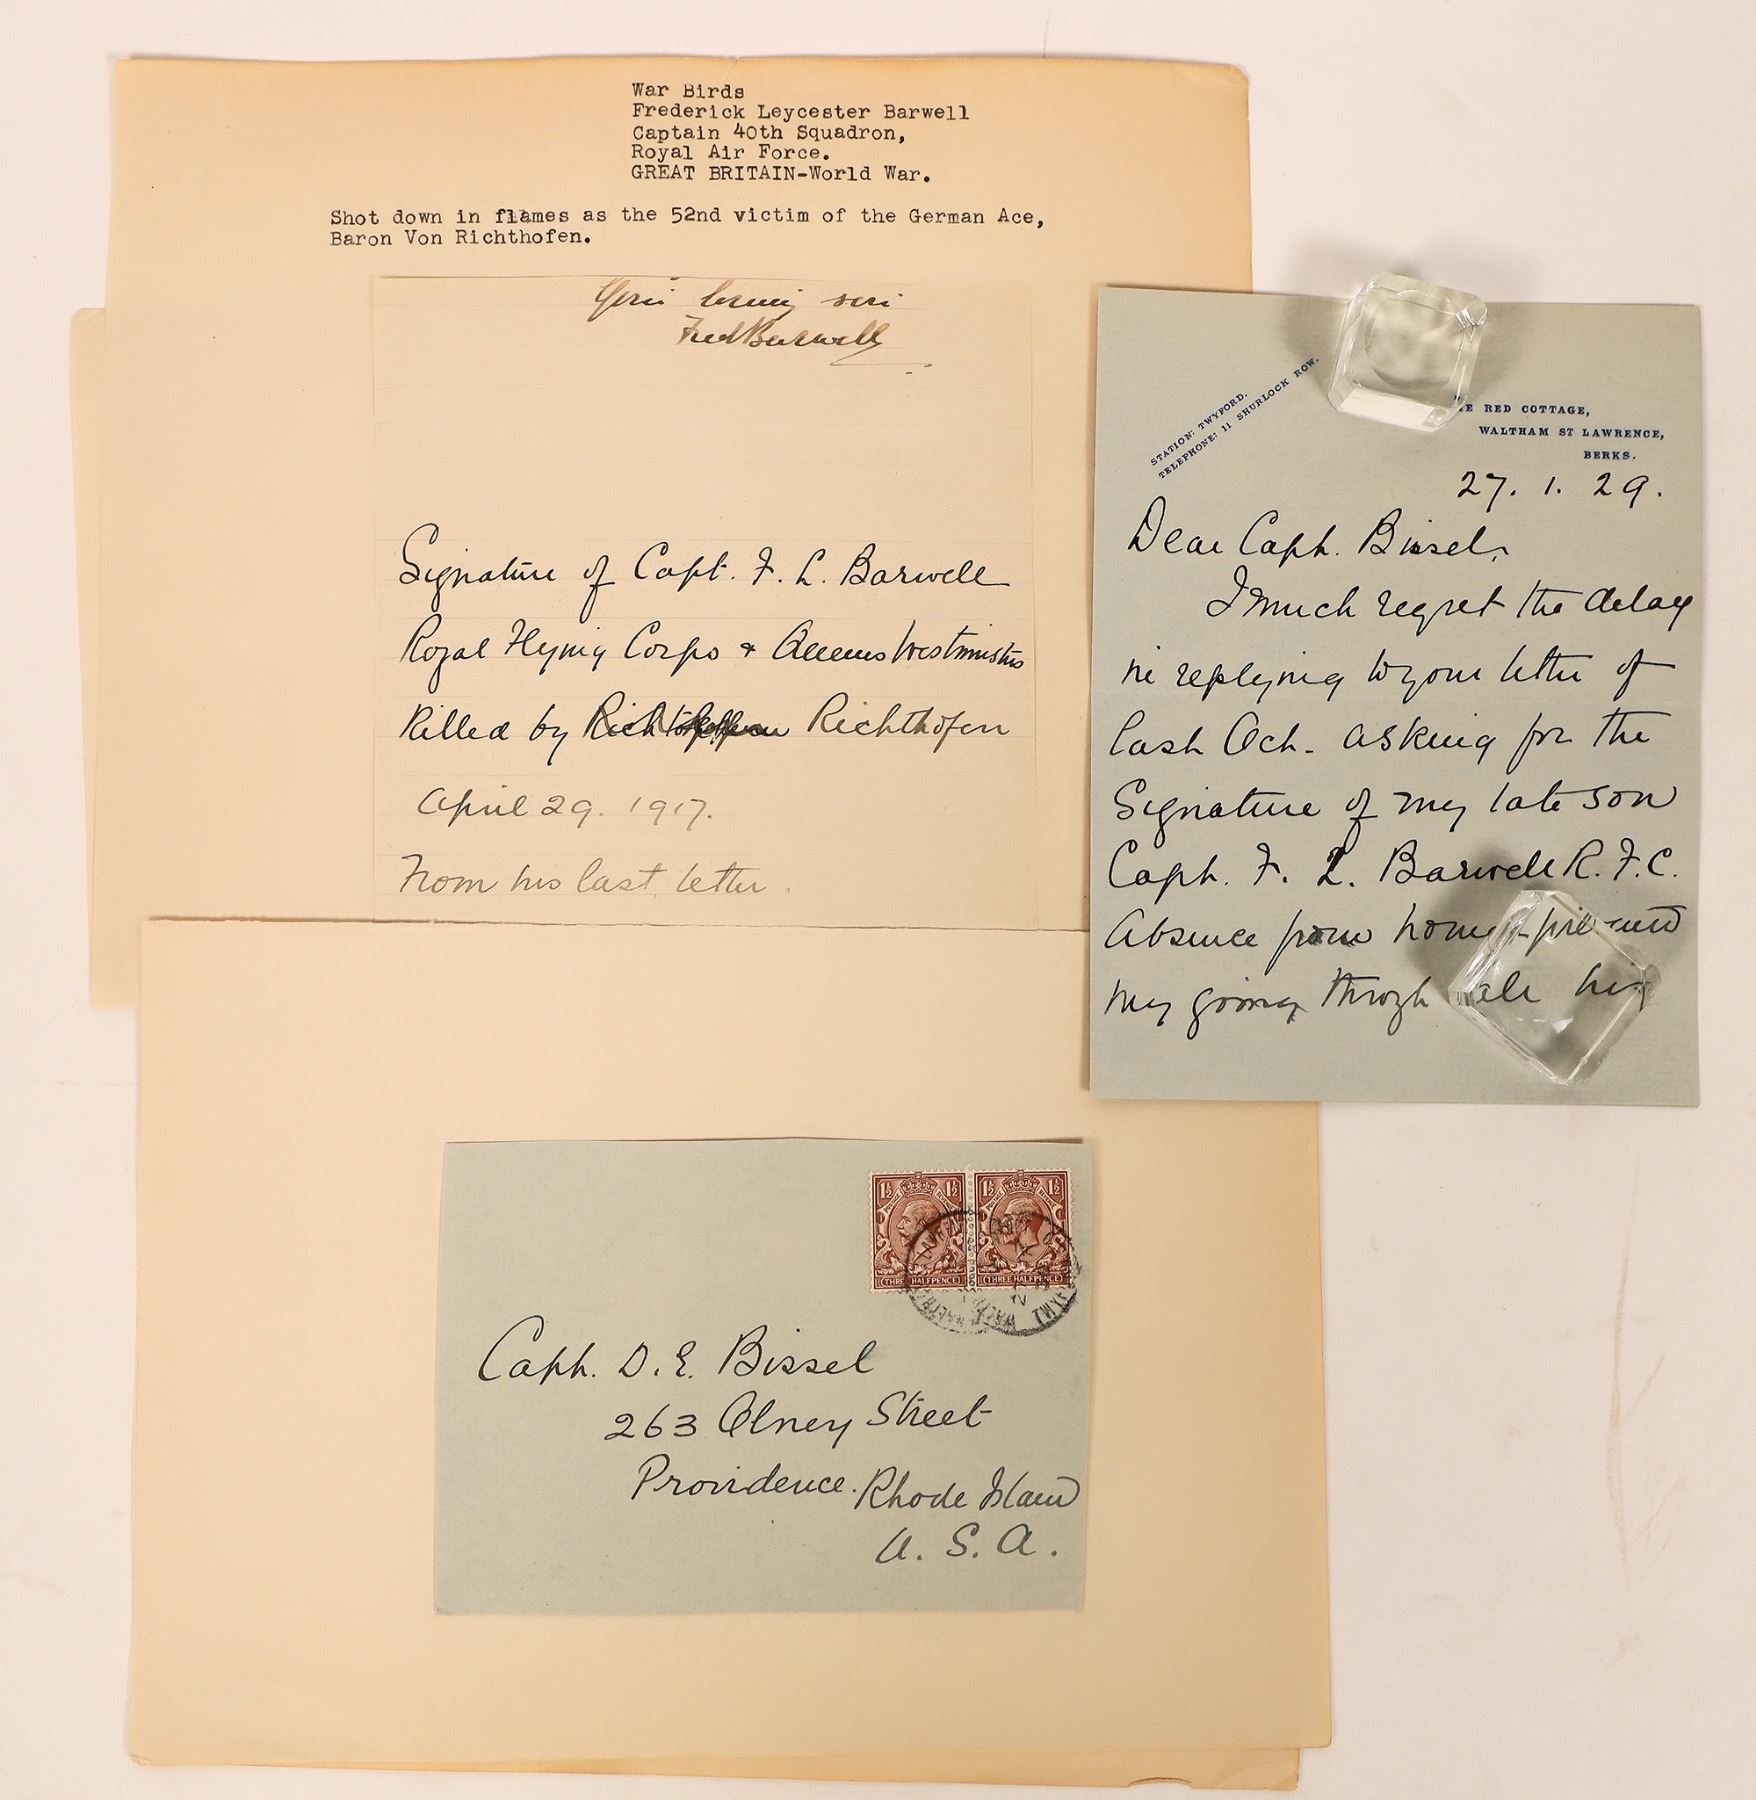 War Birds
Frederick Leycester Barwell
Captain 40th Squadron,
Royal Air Force.
GREAT BRITAIN-World War.
Shot down in flames as the 52nd victim of the German Ace,
Baron Von Richthofen.
Your loving son
Fred Barwell
Signature of Capt. F. L. Barwell
Royal Flying Corps & Queens Westminsters
Killed by Richthofen
April 29. 1917.
From his last letter.
STATION: TWYFORD.
TELEPHONE: 11 SHURLOCK ROW.
RED COTTAGE,
WALTHAM ST LAWRENCE,
BERKS.
27. 1. 29.
Dear Capt. Bissel,
I much regret the delay
in replying to your letter of
last Oct. asking for the
Signature of my late son
Capt. F. L. Barwell R.F.C.
Absence from home prevented
my going through all his
1½ 1½ 1½ 1½
THREE HALFPENCE THREE HALFPENCE
Capt. D. E. Bissel
263 Olney Street
Providence. Rhode Island
U. S. A.